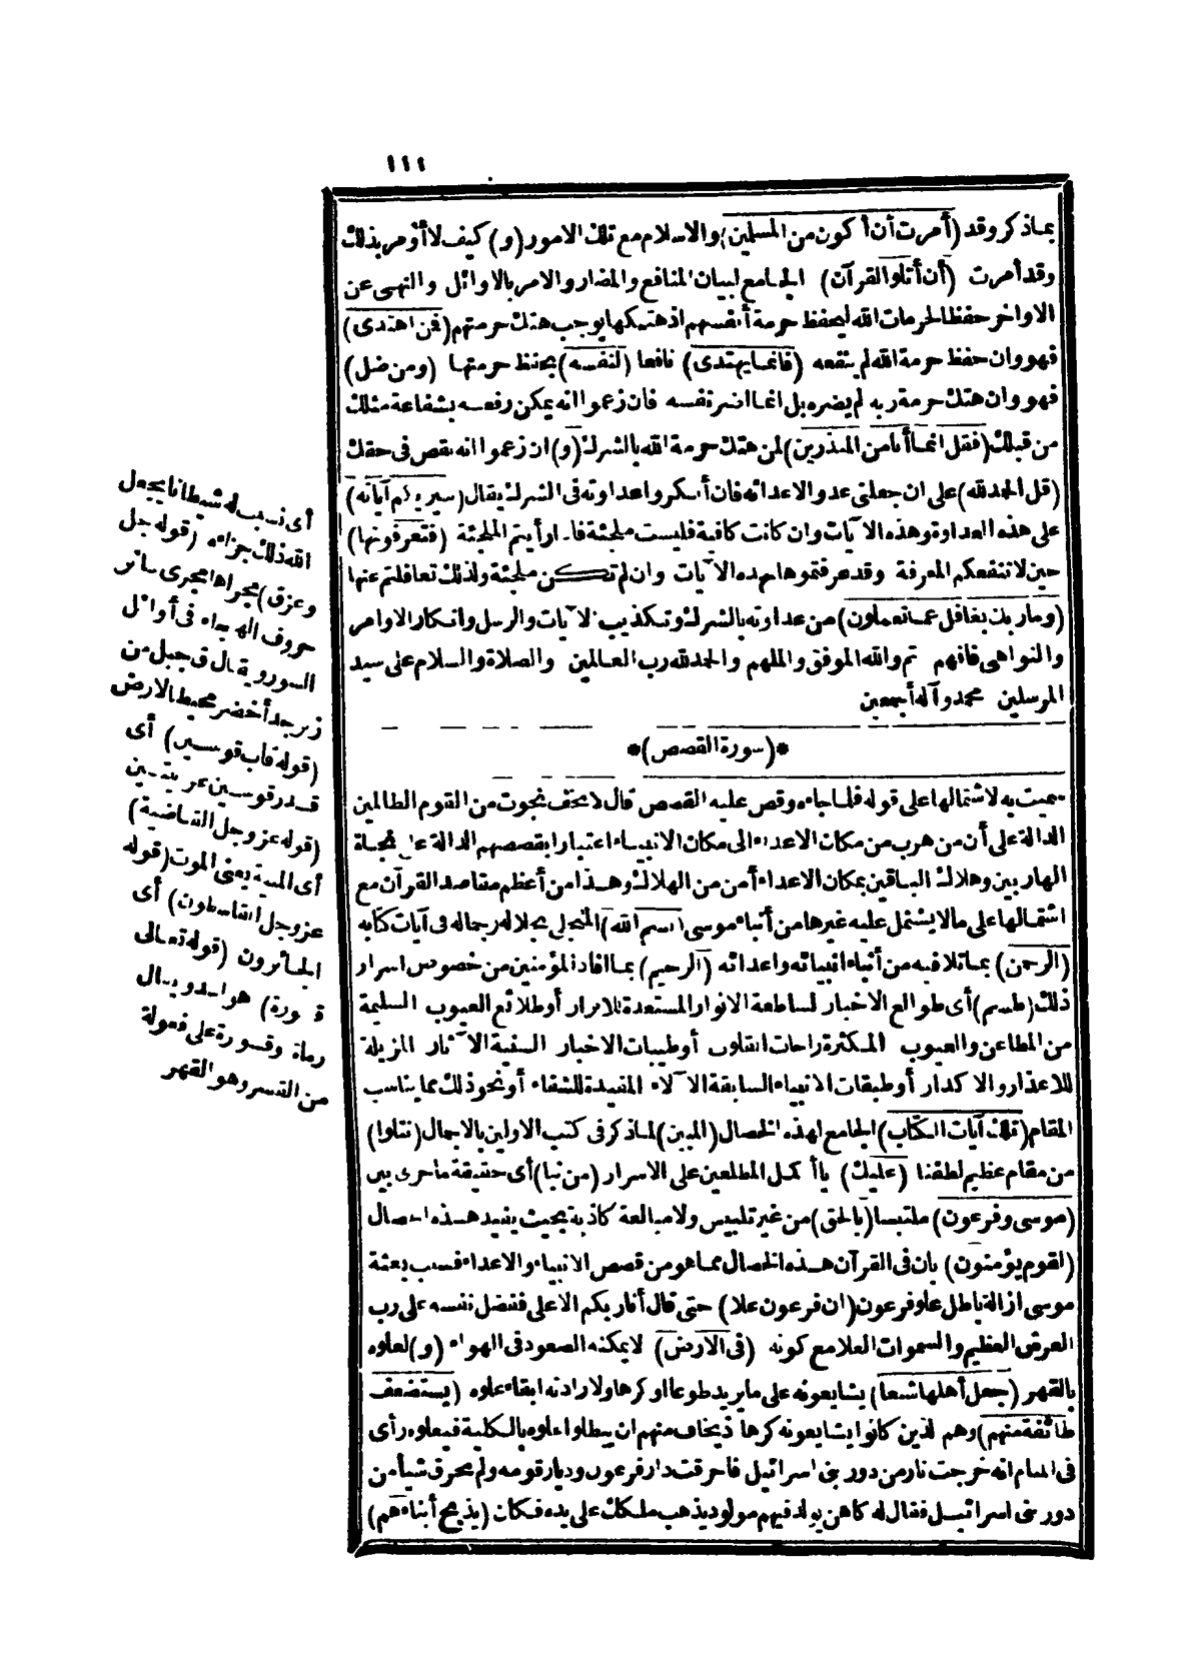 ١١١
بماذكر وقد (أمرت أن أكون من المسلمين) والاسلام مع تلك الامور (و) كيف لا أومر بذلك
وقد أمرت (أن أتلو القرآن) الجامع لبيان المنافع والمضار والامر بالاوائل والنهى عن
الاواخر حفظا لحرمات الله ليحفظ حرمة أنفسهم اذ هتكها يوجب هتك حرمتهم (فمن اهتدى)
فهو وان حفظ حرمة الله لم ينفعه (فانما يهتدى) نافعا (لنفسه) بحفظ حرمتها (ومن ضل)
فهو وان هتك حرمة ربه لم يضره بل انما اضر نفسه فان زعموا انه يمكن رفعه بشفاعة مثلك
من قبلك (فقل انما أنا من المنذرين) لمن هتك حرمة الله بالشرك (و) ان زعموا انه نقص فى حقك
(قل الحمد لله) على ان جعلنى عدو الاعدائه فان أنكروا عداوته فى الشرك يقال (سيريكم آياته)
على هذه العداوة وهذه الآيات وان كانت كافية فليست ملجئة فاذا رأيتم الملجئة (فتعرفونها)
حين لا تنفعكم المعرفة وقد عرفتموها بهذه الآيات وان لم تكن ملجئة ولذلك تغافلتم عنها
(وما ربك بغافل عما تعملون) من عداوته بالشرك وتكذيب الآيات والرسل وانكار الاوامر
والنواهى فافهم تم والله الموفق والملهم والحمد لله رب العالمين والصلاة والسلام على سيد
المرسلين محمد وآله أجمعين
*(سورة القصص)*
سميت به لاشتمالها على قوله فلما جاءه وقص عليه القصص قال لا تخف نجوت من القوم الظالمين
الدالة على أن من هرب من مكان الاعداء الى مكان الانبياء اعتبارا بقصصهم الدالة على نجاة
الهاربين وهلاك الباقين بمكان الاعداء أمن من الهلاك وهذا من أعظم مقاصد القرآن مع
اشتمالها على ما لا يشتمل عليه غيرها من أنباء موسى (بسم الله) المتجلى بجلاله وجماله فى آيات كتابه
(الرحمن) بما تلا فيه من أنباء انبيائه واعدائه (الرحيم) بما افاد المؤمنين من خصوص اسرار
ذلك (طسم) أى طوالع الاخبار لساطعة الانوار المستعدة للابرار أو طلائع العيوب السليمة
من المطاعن والعيوب المكثرة راحات القلوب أو طيبات الاخبار السنية الآثار المزيلة
للاعذار والاكدار أو طبقات الانبياء السابقة الآلاء المفيدة للشفاء أو نحو ذلك مما يناسب
المقام (تلك آيات الكتاب) الجامع لهذه الخصال (المبين) لما ذكر فى كتب الاولين بالاجمال (نتلوا)
من مقام عظيم لطفنا (عليك) يا أكمل المطلعين على الاسرار (من نبا) أى حقيقة ما جرى بين
(موسى وفرعون) ملتبسا (بالحق) من غير تلبيس ولا مبالغة كاذبة بحيث يفيد هذه الخصال
(لقوم يؤمنون) بان فى القرآن هذه الخصال مما هو من قصص الانبياء والاعداء فسبب بعثة
موسى ازالة باطل علو فرعون (ان فرعون علا) حتى قال أنا ربكم الاعلى ففضل نفسه على رب
العرش العظيم والسموات العلا مع كونه (فى الارض) لا يمكنه الصعود فى الهواء (و) لعلوه
بالقهر (جعل أهلها شيعا) يشايعونه على ما يريد طوعا او كرها ولارادته ابقاء علوه (يستضعف
طائفة منهم) وهم الذين كانوا يشايعونه كرها ‎ يخاف منهم ان يبطلوا علوه بالكلية فيعلوه رأى
فى المنام انه خرجت نار من دور بنى اسرائيل فاحرقت دار فرعون وديار قومه ولم تحرق شيأ من
دور بنى اسرائيل فقال له كاهن يولد فيهم مولود يذهب ملكك على يده فكان (يذبح أبناءهم)
أى نسبب له شيطانا يجعل
الله ذلك جزاءه (قوله جل
وعز ق) مجراها مجرى سائر
حروف الهجاء فى أوائل
السور ويقال ق جبل من
زبرجد أخضر محيط بالارض
(قوله قاب قوسين) أى
قدر قوسين عربيتين
(قوله عز وجل القاضية)
أى المنية يعنى الموت (قوله
عز وجل القاسطون) أى
الجائرون (قوله تعالى
قسورة) هو أسد ويقال
رماة وقسورة على فعولة
من القسر وهو القهر